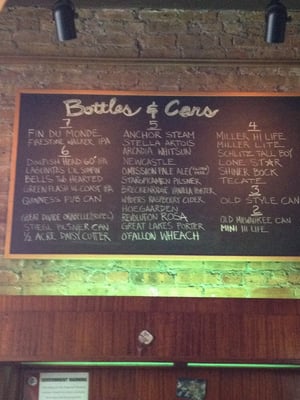 Bottles & Cans
7
FIN DU MONDE
FIRESTONE WALKER IPA
6
DOGFISH HEAD 60 IPA
LAGUNITAS LIL SUMPIN
BELL'S TWO HEARTED
GREEN FLASH IPA
GUINNESS PUB CAN
GREAT DIVIDE
STIEGL PILSNER CAN
½ ACRE DAISY CUTTER
5
ANCHOR STEAM
STELLA ARTOIS
ARCADIA WHITSUN
NEWCASTLE
OMISSION PALE ALE
PILSNER
BRECKENRIDGE VANILLA PORTER
WYDERS RASPBERRY CIDER
HOEGAARDEN
REVOLUTION ROSA
GREAT LAKES PORTER
O'FALLON WHEACH
4
MILLER HI LIFE
MILLER LITE
SCHLITZ TALL BOY
LONE STAR
SHINER BOCK
TECATE
3
OLD STYLE CAN
2
OLD MILWAUKEE CAN
MINI HI LIFE
GOVERNMENT WARNING